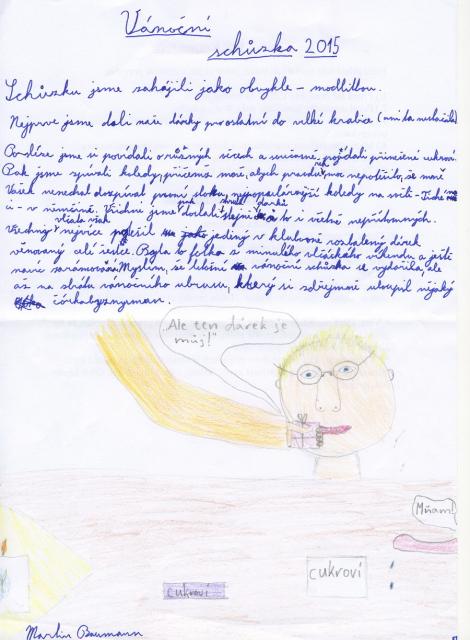 Vánoční
schůzka 2015
Schůzku jsme zahájili jako obvykle – modlitbou.
Nejprve jsme dali naše dárky prostatně do velké krabice (ani ta nestačila
Později jsme si povídali o různých věcech a současně pojídali přinesené cukroví.
Pak jsme zpívali koledy, přičemž moc, abych pravdu řekl, moc nepotěšilo, že
Vašek nenechal dozpívat první sloku nejpopulárnější koledy na světě – Tiché
ci – v němčině. Všichni jsme pak dostali stejný dárek a to i včetně nepřítomných.
Všechny však nejvíce potěšil jediný v klubovně rozbalený dárek
věnovaný celé šestce. Byla to fotka z minulého víkendu a ještě
navíc zarámovaná. Myslím, že letošní vánoční schůzka se vydařila, ale
až na ztrátu vánočního ubrusu, který si zřejmě uloupil nějaký
„Ale ten dárek je
můj!"
Mňam!
cukroví
cukroví
Martin Baumann